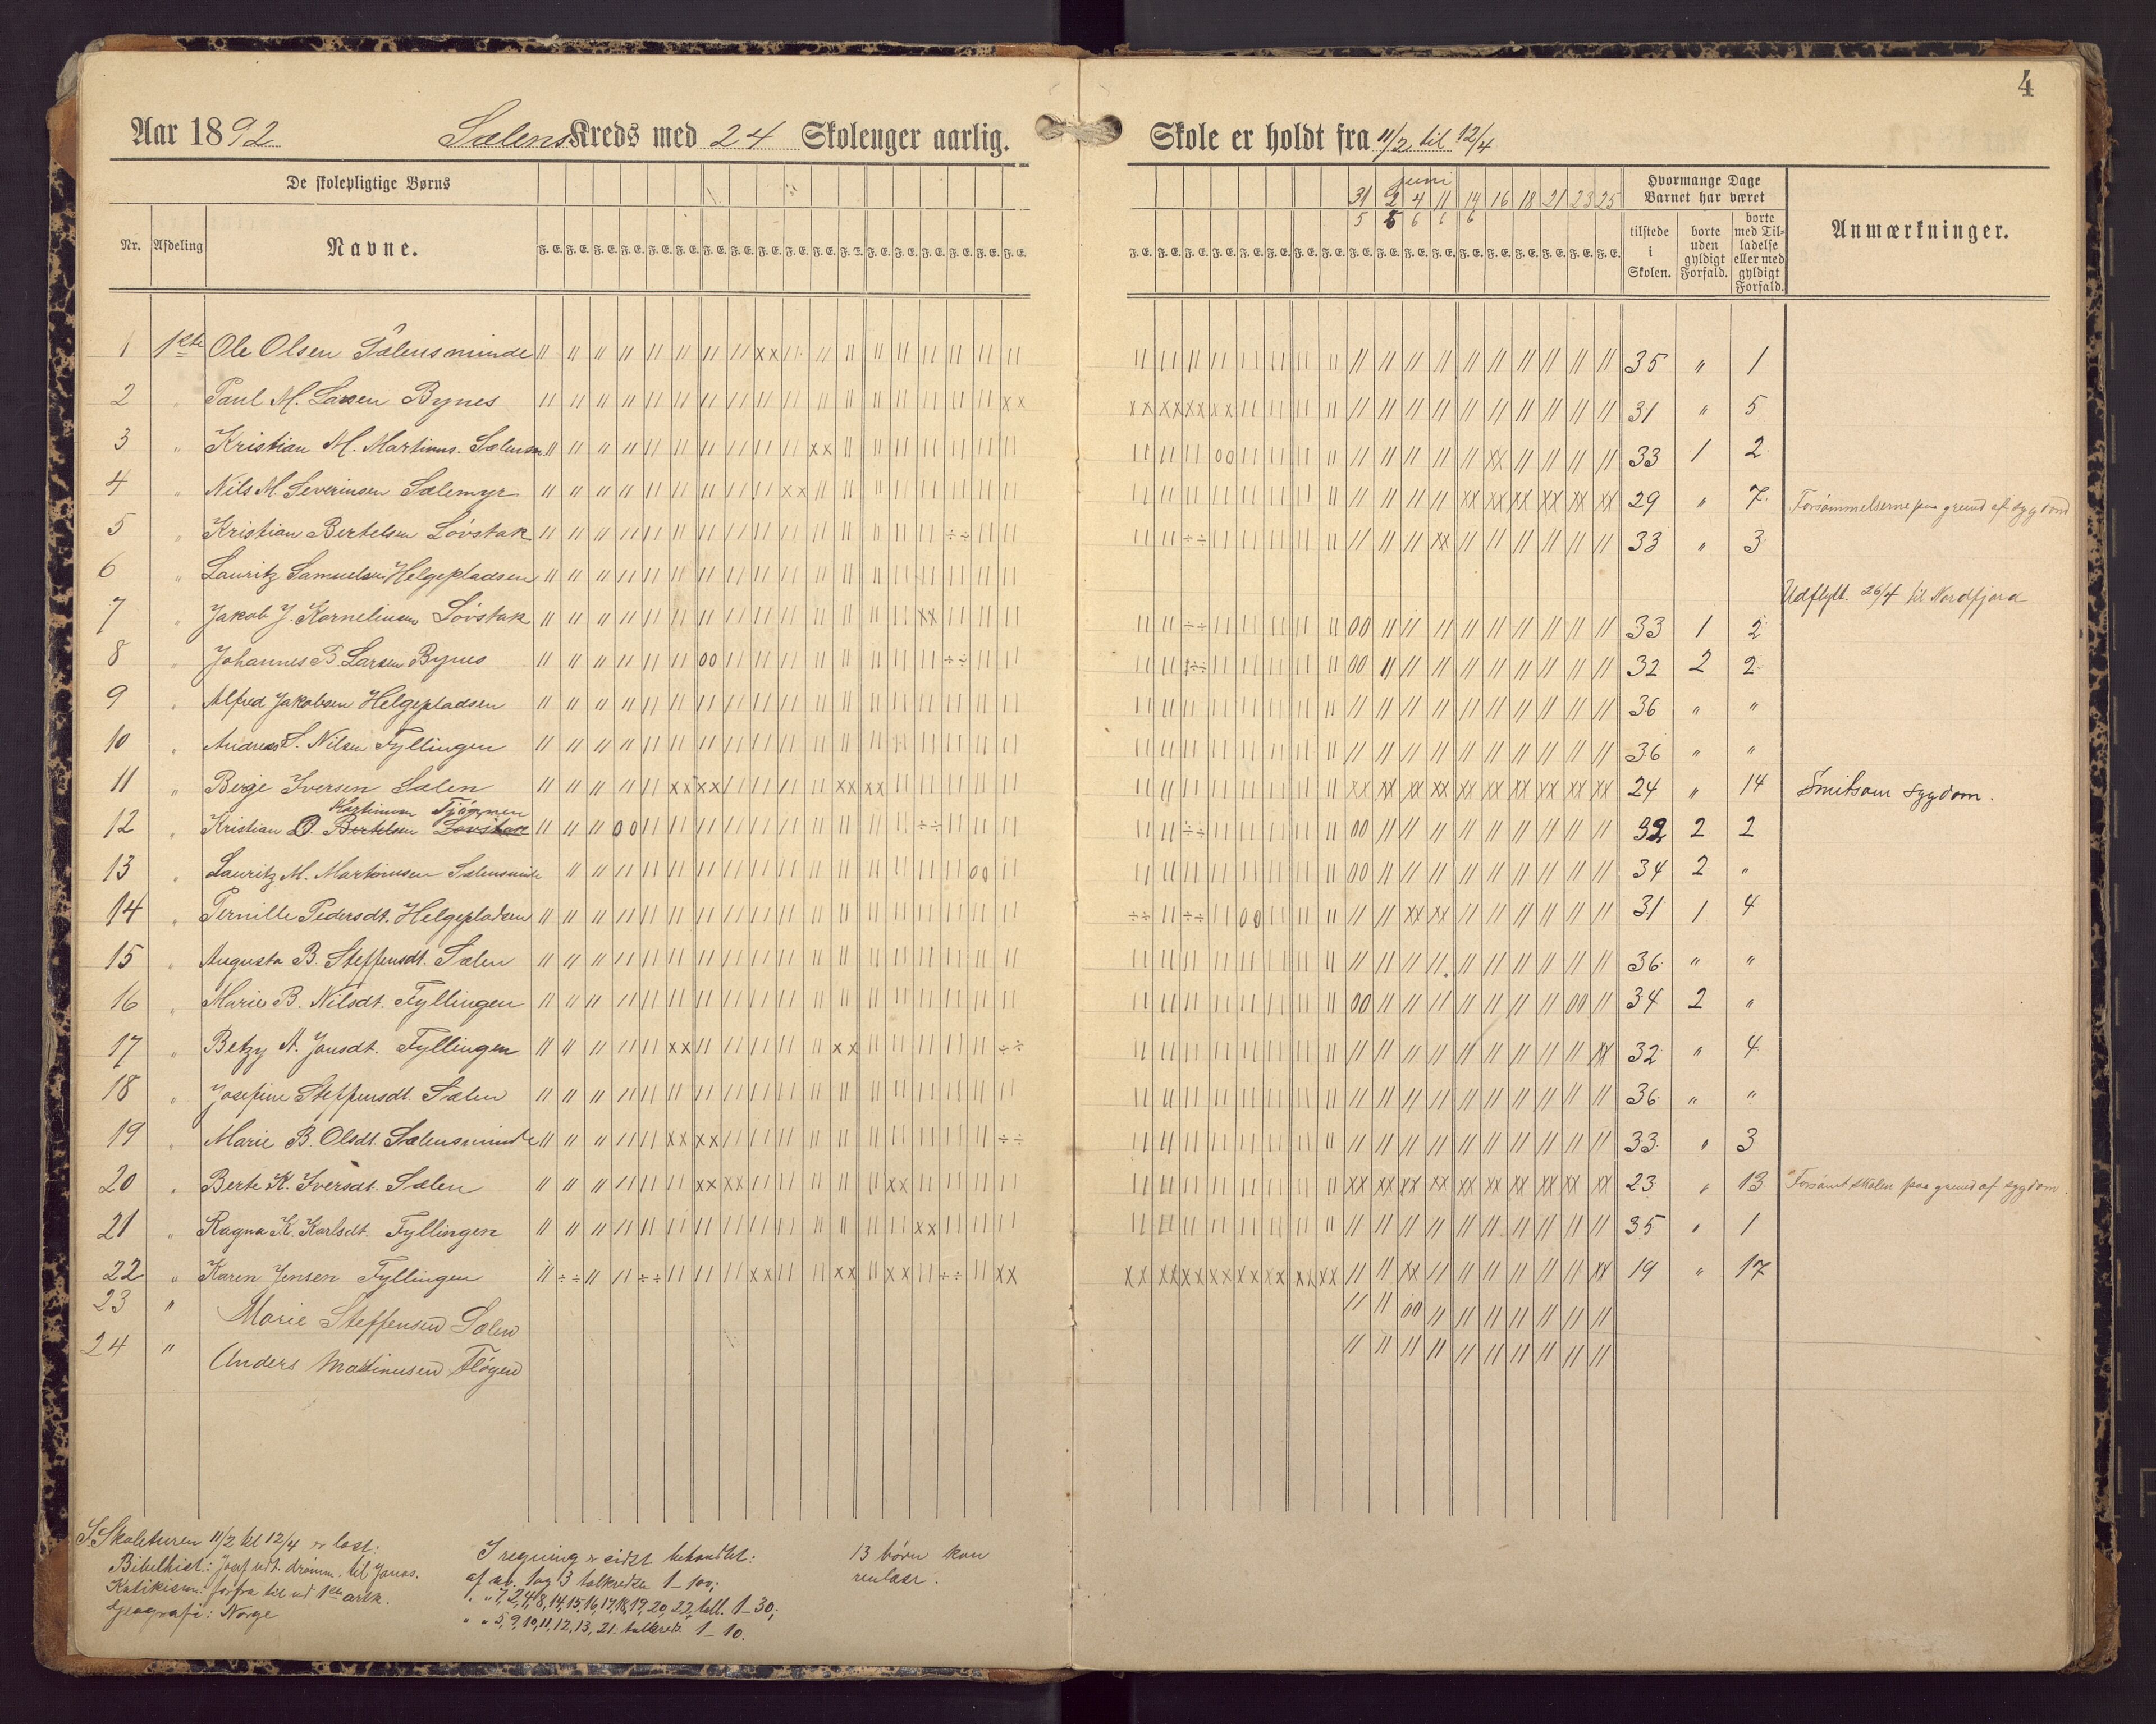 4
Aar 1892 Sælens Kreds med 24 Skoleuger aarlig. Skole er holdt fra 11/2 til 12/4
De skolepligtige Børns
Nr. Afdeling Navne.
F. E. F. E. F. E. F. E. F. E. F. E. F. E. F. E. F. E. F. E. F. E. F. E. F. E. F. E. F. E. F. E. F. E. F. E.
juni
31 2 4 11 14 16 18 21 23 25
5 6 6 6 6
Hvormange Dage Barnet har været
tilstede i Skolen. borte uden gyldigt Forfald. borte med Tilladelse eller med gyldigt Forfald.
Anmærkninger.
1 1ste Ole Olsen Sälensminde 35 " 1
2 " Paul M. Larsen Bynes 31 " 5
3 " Kristian M. Martinus. Sælensm 33 1 2
4 " Nils M. Severinsen Sælemyr 29 " 7 Forsömmelserne paa grund af sygdom
5 " Kristian Bertelsen Lövstak 33 " 3
6 " Lauritz Samuelsen Helgepladsen Udflytt. 26/4 til Nordfjord
7 " Jakob J. Kornelius. Lövstak 33 1 2
8 " Johannes B. Larsen Bynes 32 2 2
9 " Alfred Jakobsen Helgepladsen 36 " "
10 " Andreas S. Nilsen Fyllingen 36 " "
11 " Berge Iversen Sælen 24 " 14 Smitsom sygdom.
Martinsen Tjönnen
12 " Kristian O. Bertelsen Lovstak 32 2 2
13 " Lauritz M. Martinusen Sælensminde 34 2 "
14 " Pernille Pedersdt. Helgepladsen 31 1 4
15 " Augusta B. Steffensdt. Sælen 36 " "
16 " Marie B. Nilsdt. Fyllingen 34 2 "
17 " Betzy A. Jonsdt. Fyllingen 32 " 4
18 " Josefine Steffensdt. Sælen 36 " "
19 " Marie B. Olsdt. Sælensminde 33 " 3
20 " Berte K. Iversdt. Sælen 23 " 13 Forsömt skolen paa grund af sygdom.
21 " Ragna K. Karlsdt. Fyllingen 35 " 1
22 " Karen Jensen Fyllingen 19 " 17
23 " Marie Steffensen Sælen
24 " Anders Martinusen Flöyen
I Skoleturen 11/2 til 12/4 er læst:
Bibelhist: Josef udt. drömm. til Jonas.
Katikism: forfra til ud 1ste artk.
Geografi: Norge
I regning er sidst behandlet:
af no. 1 og 3 talkredsen 1–100;
" " 7, 2, 4, 8, 14, 15, 16, 17, 18, 19, 20, 22, tall. 1–30;
" " 5, 9, 10, 11, 12, 13, 21: talkreds. 1–10.
13 börn kan
renlæse.